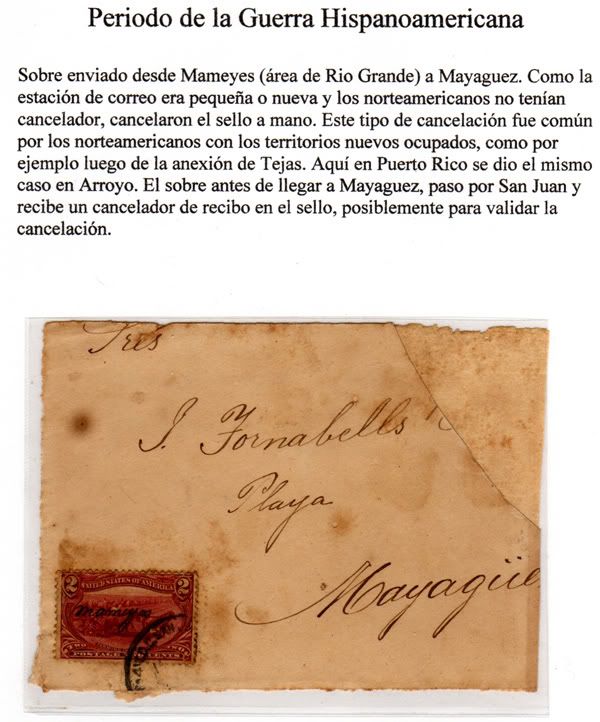 Periodo de la Guerra Hispanoamericana
Sobre enviado desde Mameyes (área de Rio Grande) a Mayaguez. Como la
estación de correo era pequeña o nueva y los norteamericanos no tenían
cancelador, cancelaron el sello a mano. Este tipo de cancelación fue común
por los norteamericanos con los territorios nuevos ocupados, como por
ejemplo luego de la anexión de Tejas. Aquí en Puerto Rico se dio el mismo
caso en Arroyo. El sobre antes de llegar a Mayaguez, paso por San Juan y
recibe un cancelador de recibo en el sello, posiblemente para validar la
cancelación.
Tres
J. Fornabells
Playa
Mayagüe
2 UNITED STATES OF AMERICA 2
Mameyes
TWO
POSTAGE CENTS